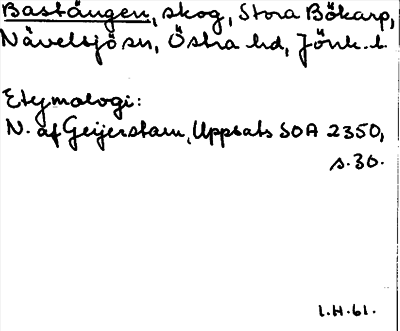 Bastängen, skog, Stora Bökarp,
Nävelsjö sn, Östra hd, Jönk. l.
Etymologi:
N. af Geijerstam, Uppsats SOA 2350,
s. 30.
I.H. 61.